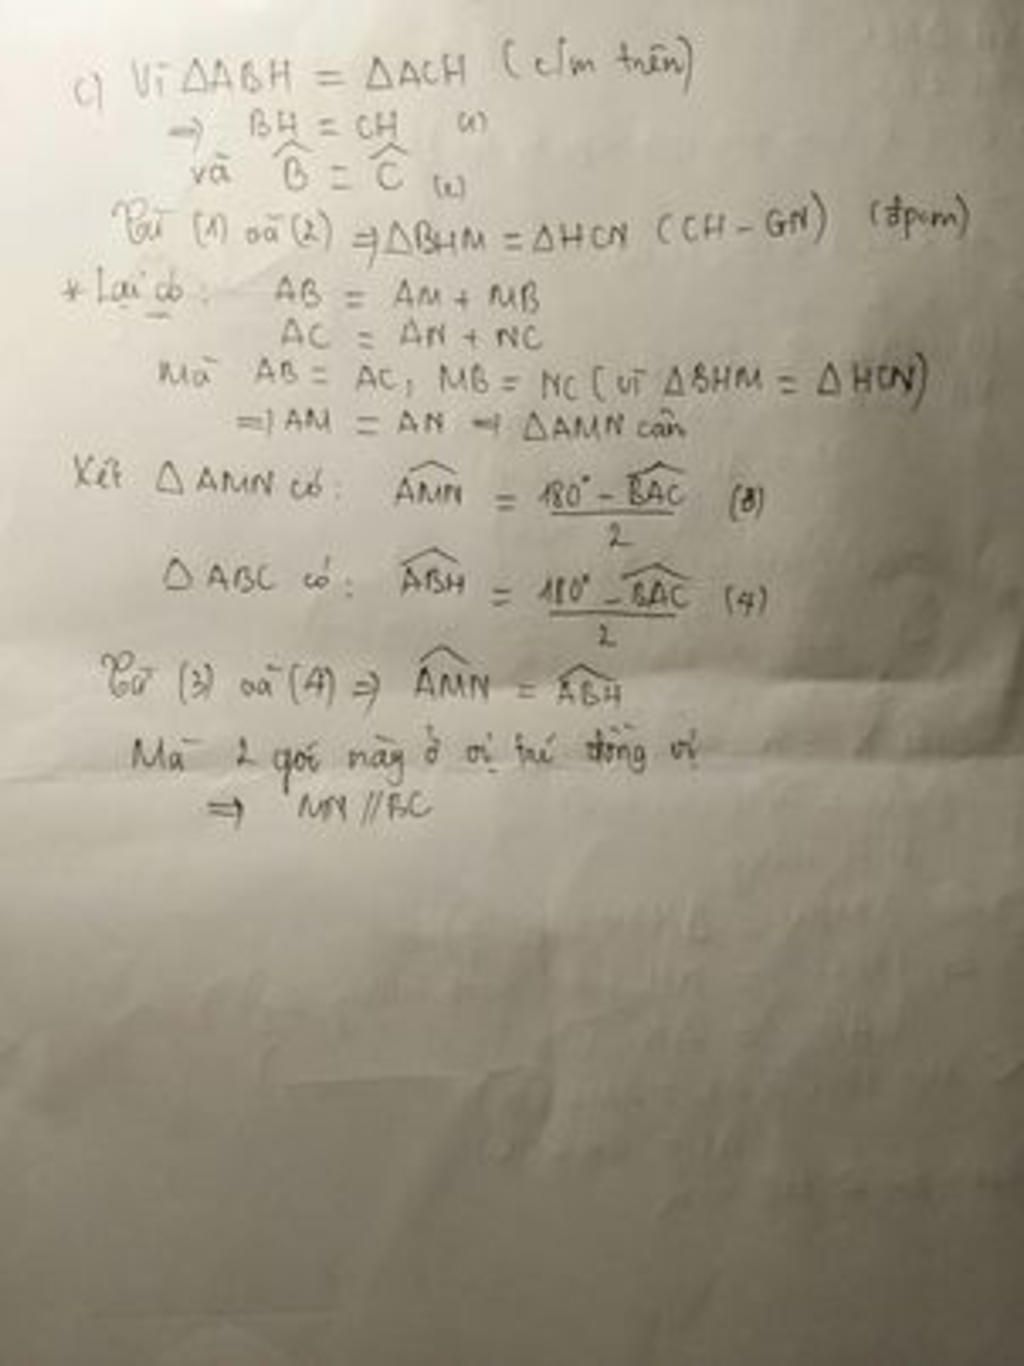 c) Vì ΔABH = ΔACH (c/m trên)
⇒ BH = CH (1)
và B̂ = Ĉ (2)
Từ (1) và (2) ⇒ ΔBHM = ΔHCN (CH - GN) (đpcm)
* Lại có: AB = AM + MB
AC = AN + NC
Mà AB = AC, MB = NC (vì ΔBHM = ΔHCN)
⇒ AM = AN ⇒ ΔAMN cân
Xét ΔAMN có: \widehat{AMN} = \frac{180° - \widehat{BAC}}{2} (3)
ΔABC có: \widehat{ABH} = \frac{180° - \widehat{BAC}}{2} (4)
Từ (3) và (4) ⇒ \widehat{AMN} = \widehat{ABH}
Mà 2 góc này ở vị trí đồng vị
⇒ MN // BC